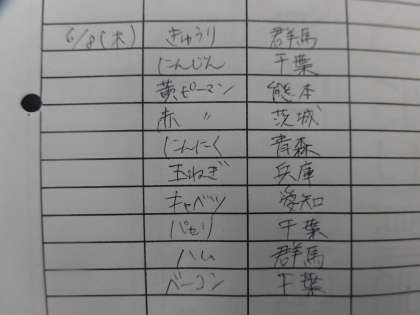 6/8(木) きゅうり 群馬
にんじん 千葉
黄ピーマン 熊本
赤 〃 茨城
にんにく 青森
玉ねぎ 兵庫
キャベツ 愛知
パセリ 千葉
ハム 群馬
ベーコン 千葉